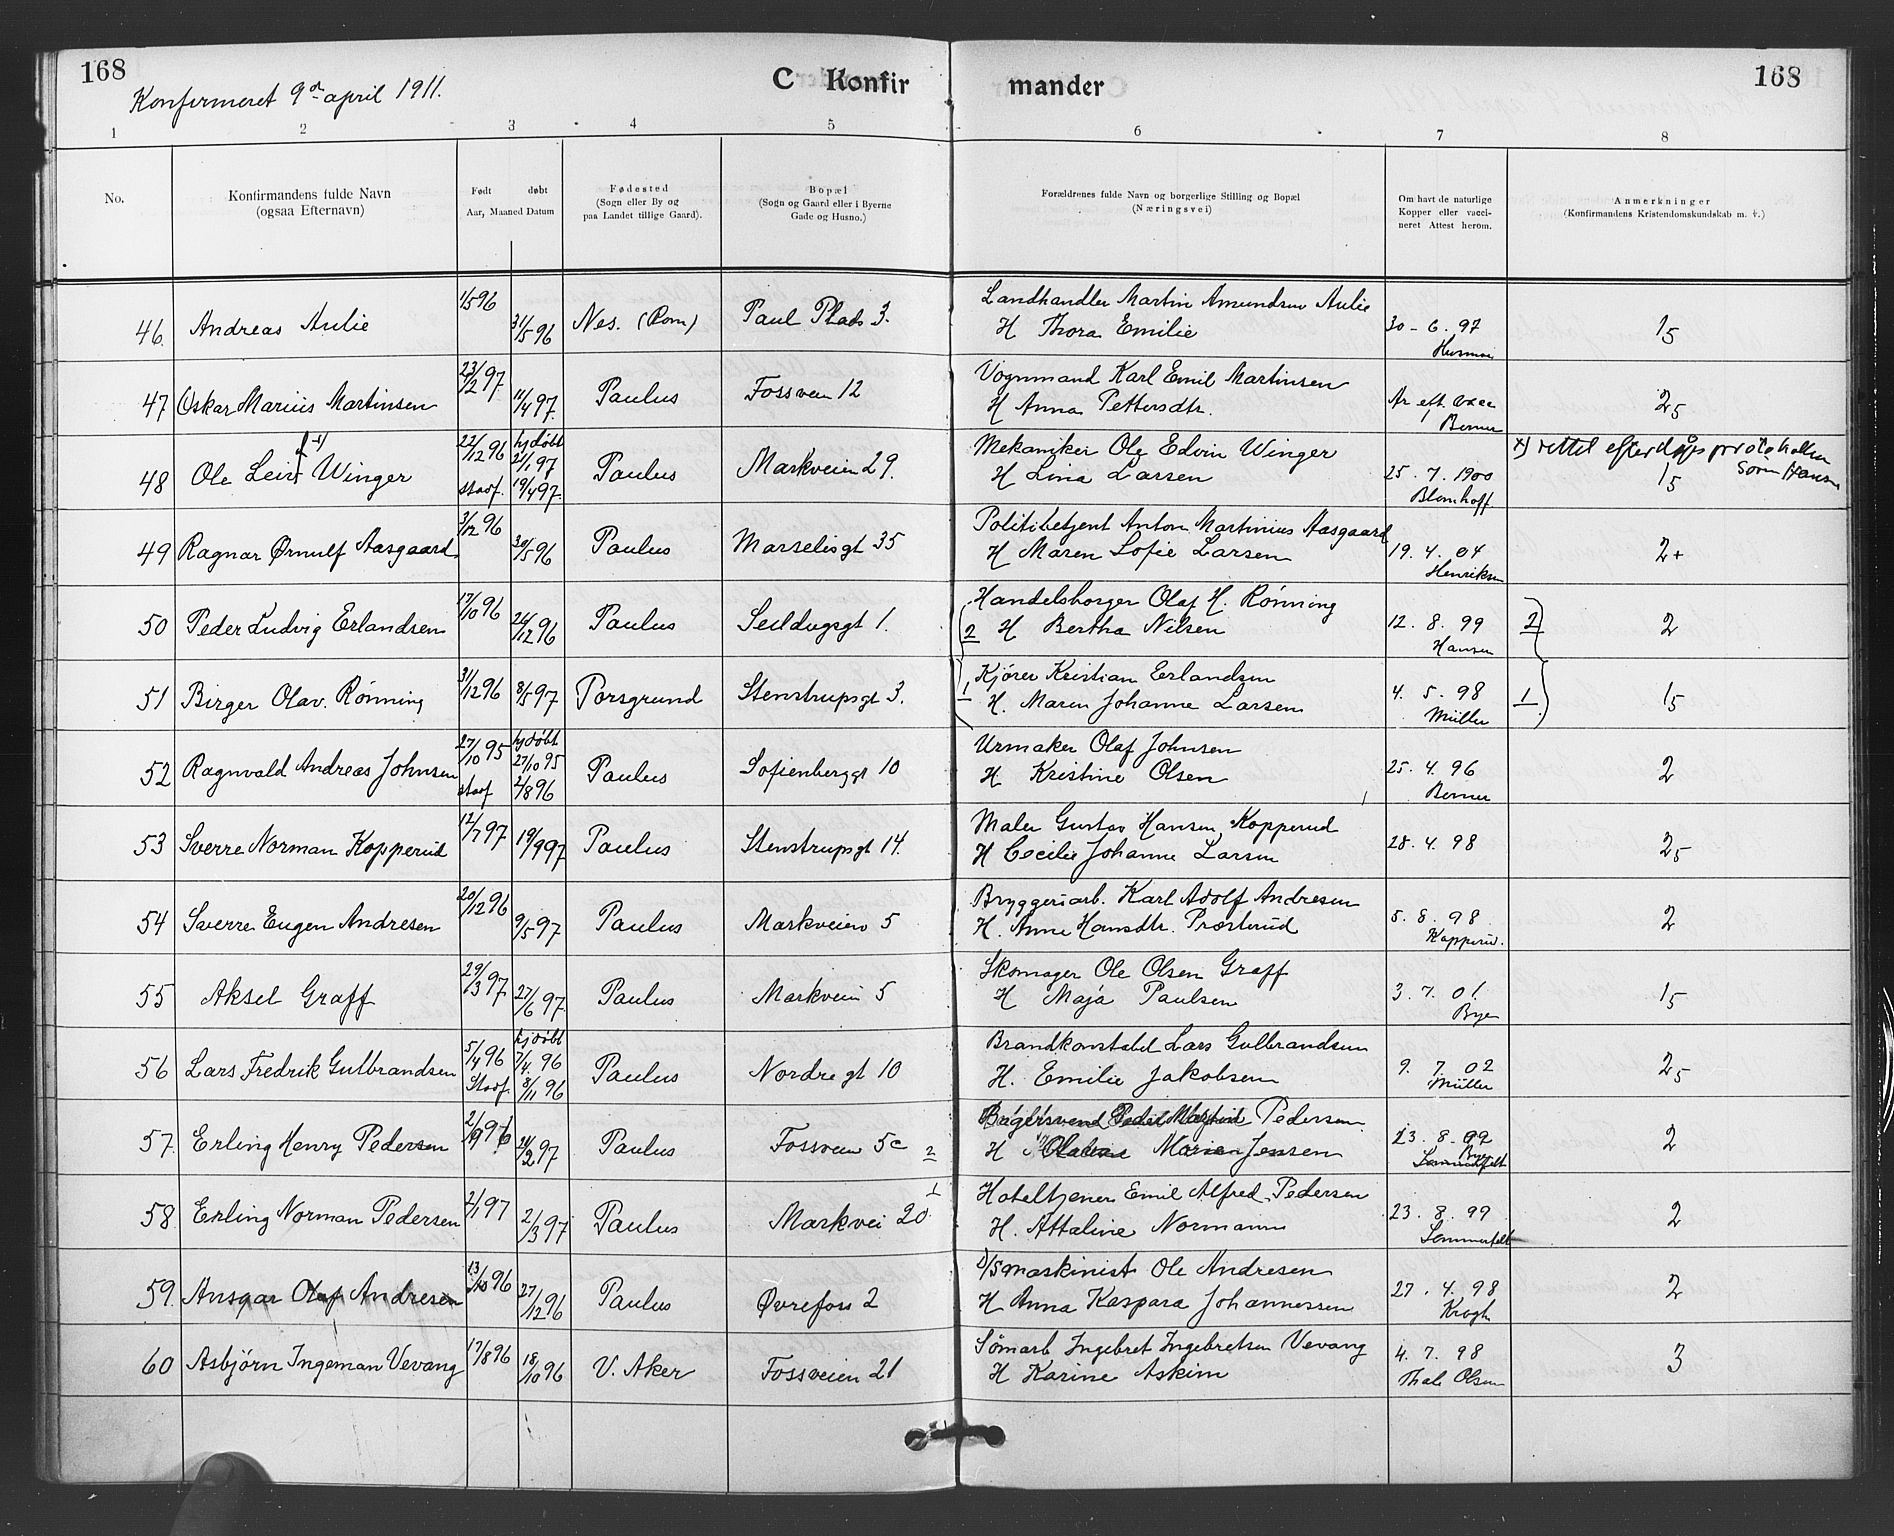 168
Konfirmeret 9de april 1911.
C Konfir mander
168
1 2 3 4 5 6 7 8
No.
Konfirmandens fulde Navn
(ogsaa Efternavn)
Født døbt
Aar, Maaned Datum
Fødested
(Sogn eller By og
paa Landet tillige Gaard).
Bopæl
(Sogn og Gaard eller i Byerne
Gade og Husno.)
Forældrenes fulde Navn og borgerlige Stilling og Bopæl
(Næringsvei)
Om havt de naturlige
Kopper eller vacci-
neret Attest herom.
Anmerkninger
(Konfirmandens Kristendomskundskab m. v.)
46. Andreas Aulie 1/5 96 31/5 96 Nes. (Rom) Paul Plads 3.
Landhandler Martin Amundsen Aulie
H Thora Emilie
30 - 6. 97
15
47 Oskar Marius Martinsen 23/2 97 11/4 97. Paulus Fossveien 12
Vognmand Karl Emil Martinsen
H Anna Pettersdtr.
Ar eft. vacc
Berner
25
48 Ole Leif Winger 22/12 96 stadf. hjdøbt 21/1 97 19/4 97. Paulus Markveien 29.
Mekaniker Ole Edvin Winger
H Lina Larsen
25. 7. 1900
Blomhoff
x) rettet efter dåpsprotokollen
Sørn Hansen
15
49 Ragnar Ørnulf Aasgaard 3/12 96 30/5 96 Paulus Marselisgt 35
Politibetjent Anton Martinius Aasgaard
H Maren Sofie Larsen
19. 4. 04
Henriksen
2+
50 Peder Ludvig Erlandsen 17/10 96 26/12 96 Paulus Seildugsgt 1.
2 Handelsborger Olaf H. Rønning
H Bertha Nilsen
12. 8. 99
Hansen
2 2
51 Birger Olav. Rønning 31/12 96 8/5 97 Porsgrund Stenstrupsgt 3.
1 Kjører Kristian Erlandsen
H. Maren Johanne Larsen
4. 5. 98
Müller
1 15
52 Ragnvald Andreas Johnsen 27/10 95 stadf hjdøbt 27/10 95 2/8 96 Paulus Sofienberggt 10
Urmaker Olaf Johnsen
H Kristine Olsen
25. 4. 96
Berner
2
53 Sverre Norman Kopperud 12/7 97 19/9 97 Paulus Stenstrupsgt 14.
Maler Gustav Hansen Kopperud
H Cecilie Johanne Larsen
28. 4. 98
25
54 Sverre Eugen Andresen 20/12 96 9/5 97 Paulus Markveien 5
Bryggeriarb. Karl Adolf Andresen
H. Anne Hansdtr. Præsterud
5. 8. 98
Kopperud.
2
55 Aksel Graff 29/3 97 27/6 97. Paulus Markveien 5
Skomager Ole Olsen Graff
H Maja Paulsen
3. 7. 01.
Bye
15
56 Lars Fredrik Gulbrandsen 5/4 96 Stadf. hjdøbt 7/4. 96 8/11 96 Paulus Nordregt 10
Brandkonstabel Lars Gulbrandsen
H. Emilie Jakobsen
9. 7. 02
Müller
25
57. Erling Henry Pedersen 96 21/2 97 Paulus Fossveien 5c 2
Pedersen.
H Marie Jensen
23. 8. 02
Bye
2
58 Erling Norman Pedersen 2/1 97 2/3 97 Paulus Markvei 20 1
Hoteltjener Emil Alfred Pedersen
H. Attaline Normann
23. 8. 99
Sommerfelt
2
59. Ansgar Olaf Andresen 13/10 96 27/12 96 Paulus Øvrefoss 2
D/S maskinist Ole Andresen
H Anna Kaspara Johannessen
27. 4. 98
Krogh
2
60 Asbjørn Ingeman Vevang 17/8 96 18/10 96 V. Aker Fossveien 21
Sømarb Ingebret Ingebretsen Vevang
H Karine Askim
4. 7. 98
Thale Olsen
3